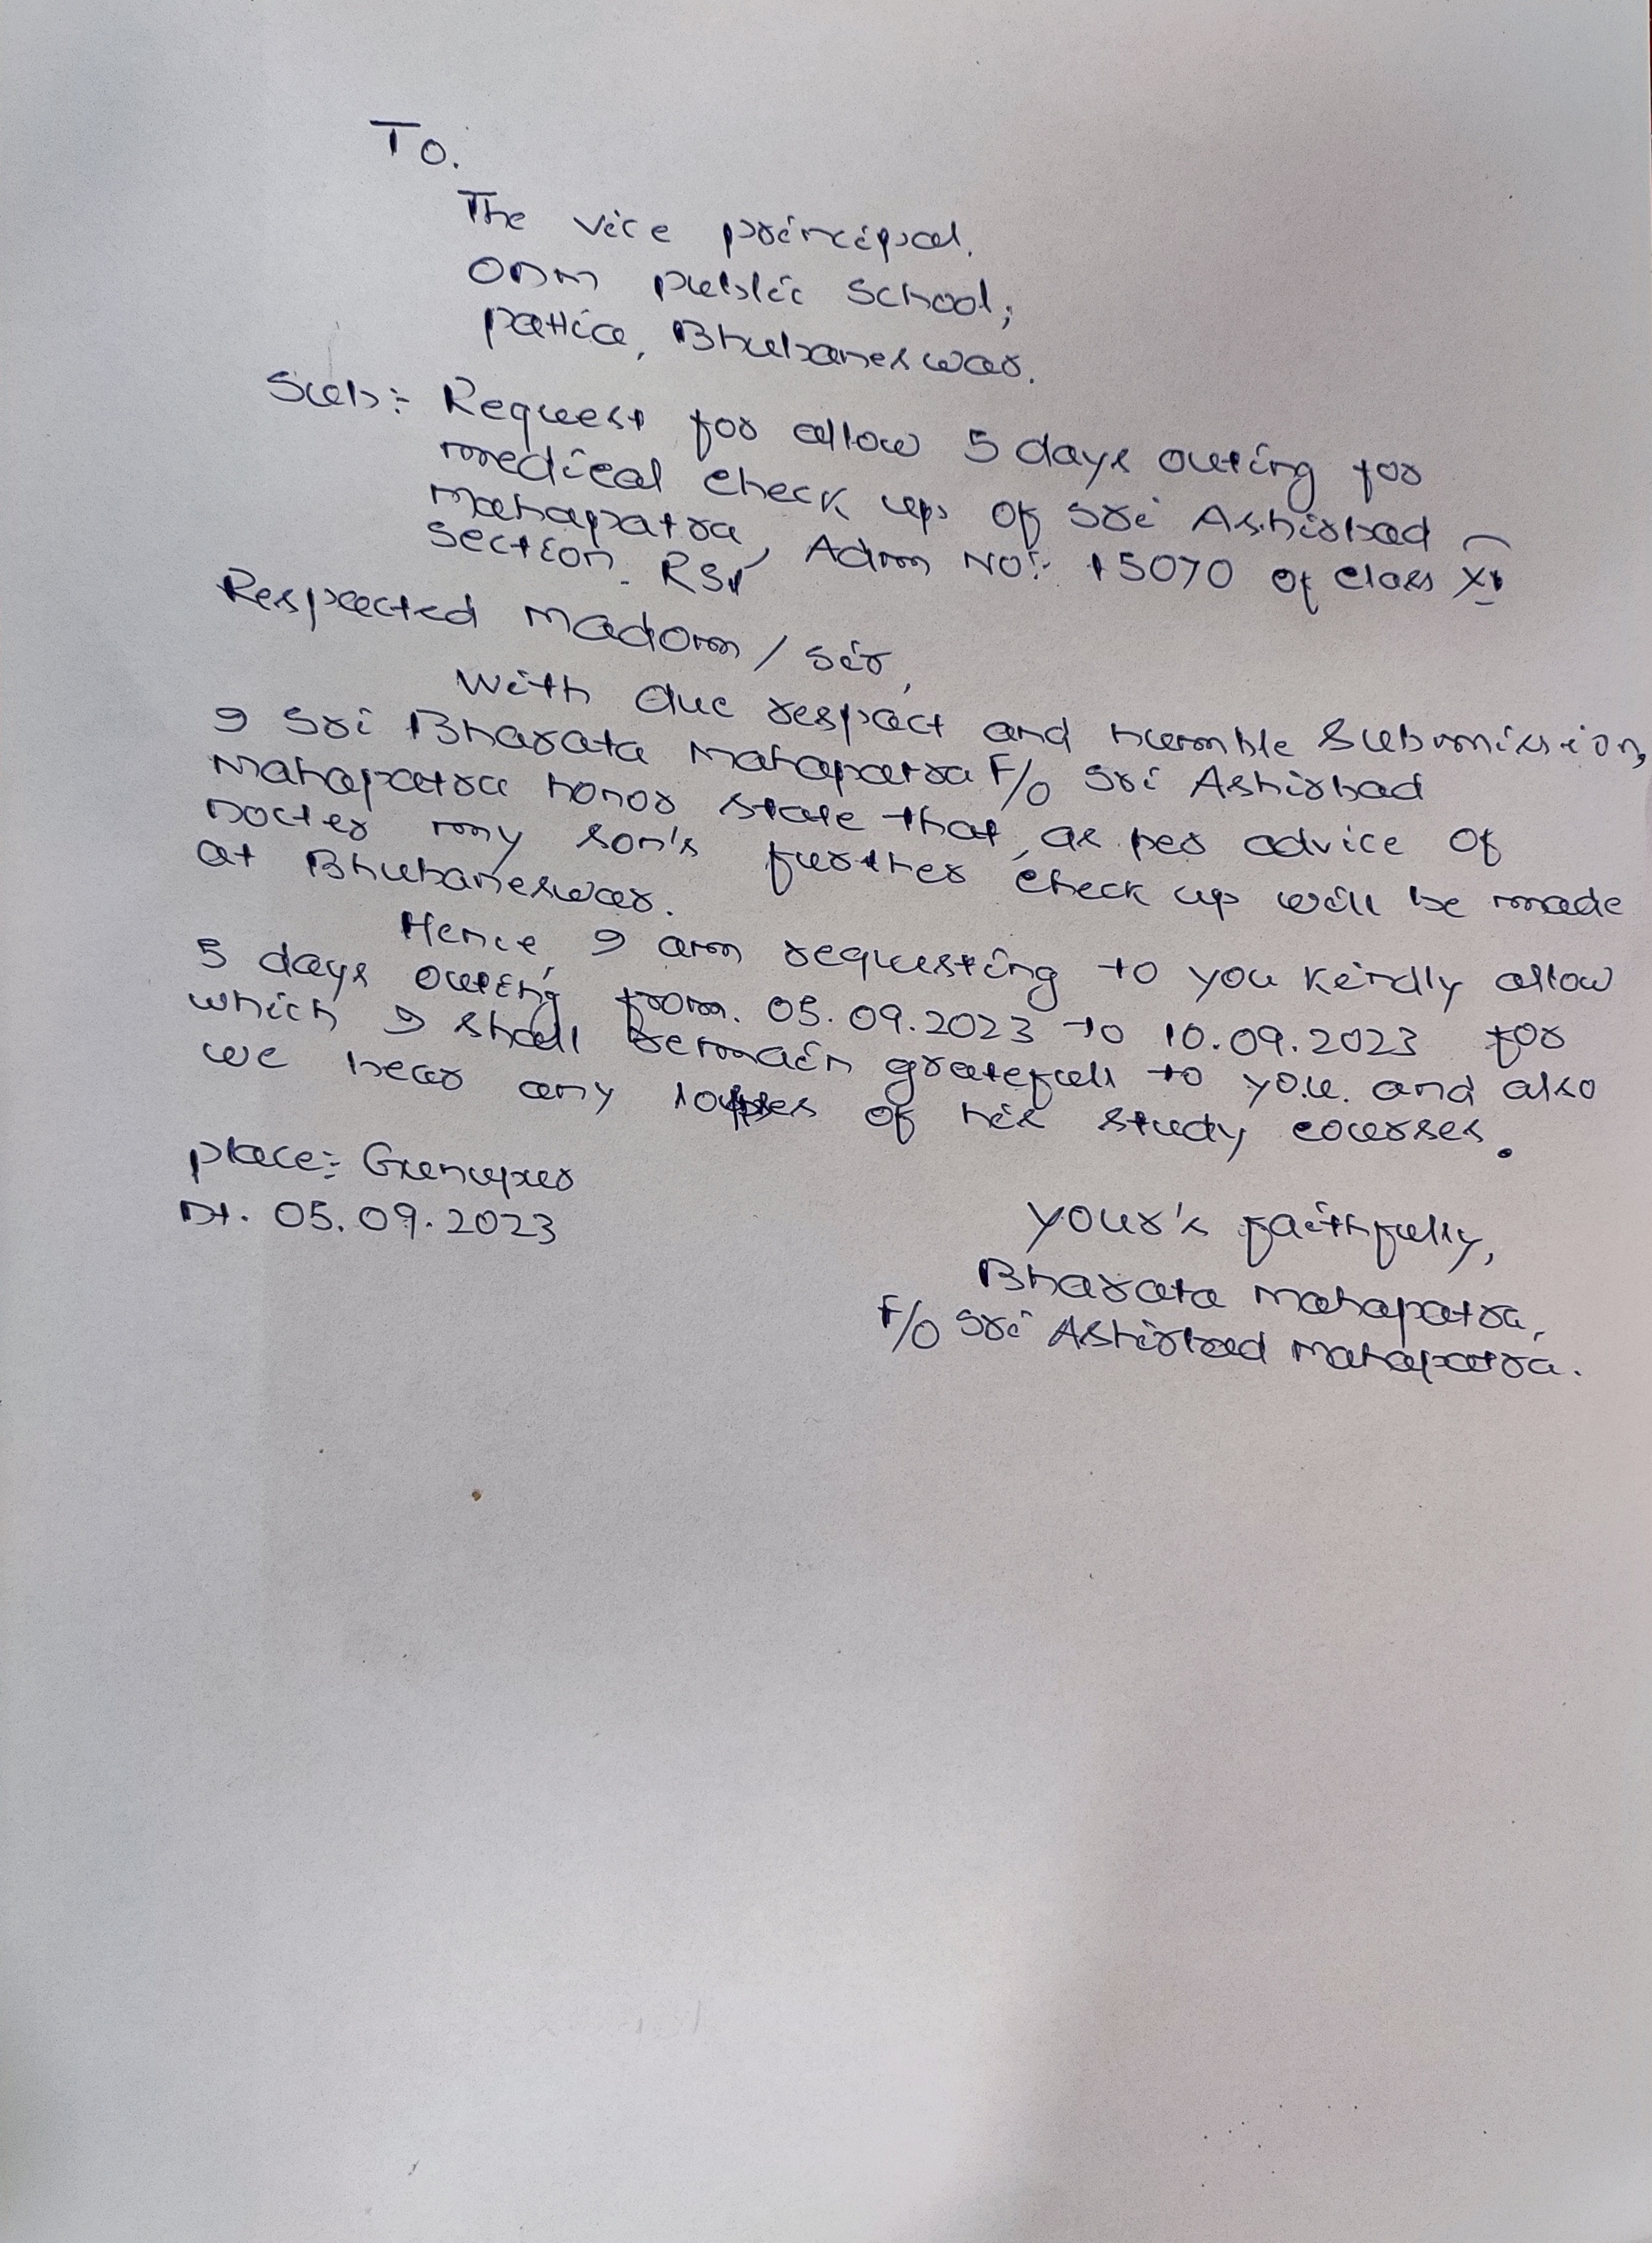 To.
The vice principal.
ODM public School;
patia, Bhubaneswar.
Sub:- Request for allow 5 days outing for
medical check up of Sri Ashirbad
Mahapatra, Adm No:- 15070 of class XI
section. RS1
Respected madam / sir,
With due respect and humble submission,
I Sri Bharata Mahapatra F/o Sri Ashirbad
Mahapatra honor state that, as per advice of
Docter my son's further check up will be made
at Bhubaneswar.
Hence, I am requesting to you kindly allow
5 days outing from. 05.09.2023 to 10.09.2023 for
which I shall remain gratefull to you. and also
we bear any losses of his study courses.
place:- Gunupur
Dt. 05.09.2023
Your's faithfully,
Bharata Mahapatra,
F/o Sri Ashirbad Mahapatra.